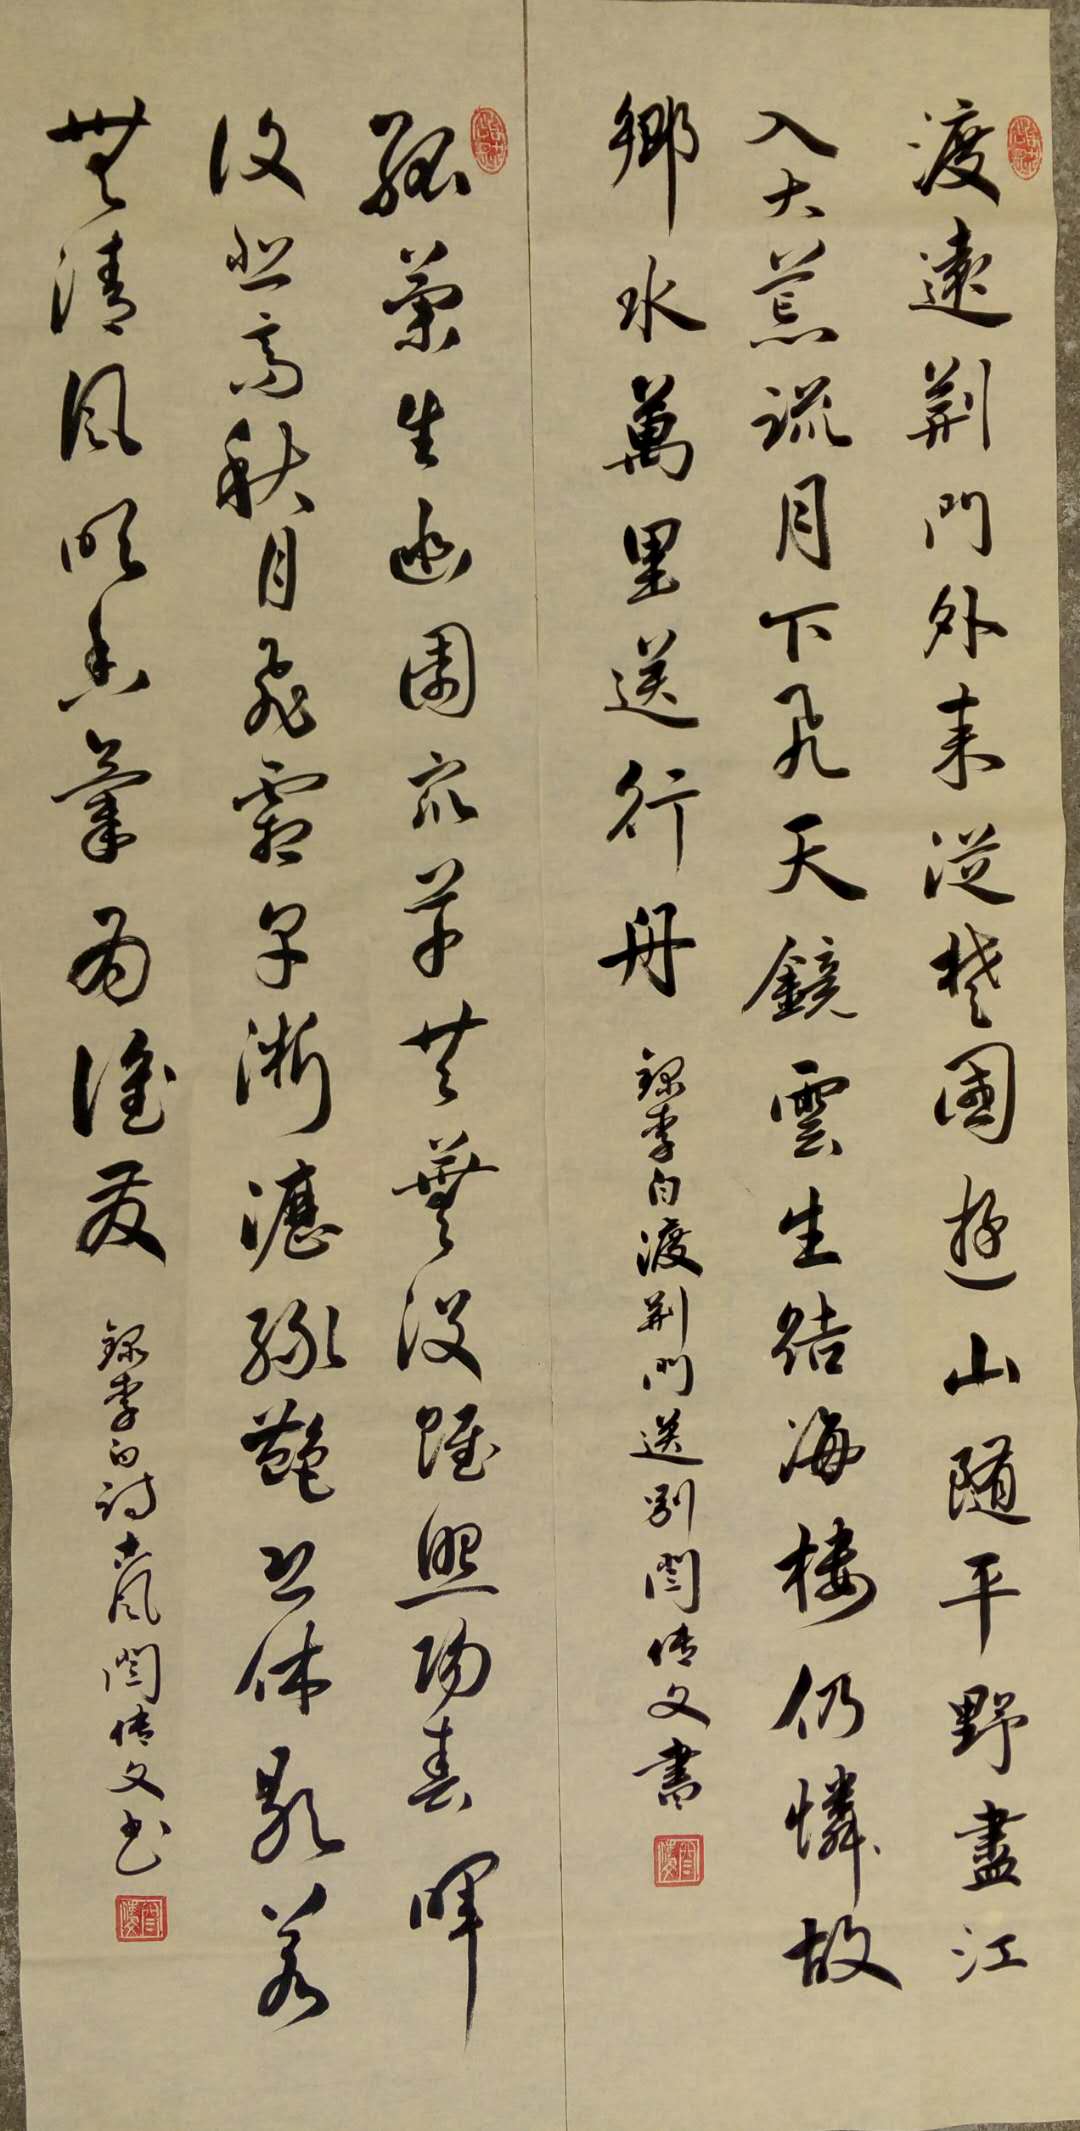 渡遠荆門外来從楚國遊山随平野盡江
入大荒流月下飛天鏡雲生結海樓仍憐故
鄉水萬里送行舟
録李白渡荆門送别閆传文書
孤蘭生幽園眾草共蕪沒雖照陽春暉
復悲高秋月飛霜早淅瀝緑艷恐休歇若
無清風吹香氣為誰發
録李白詩古風閆传文书